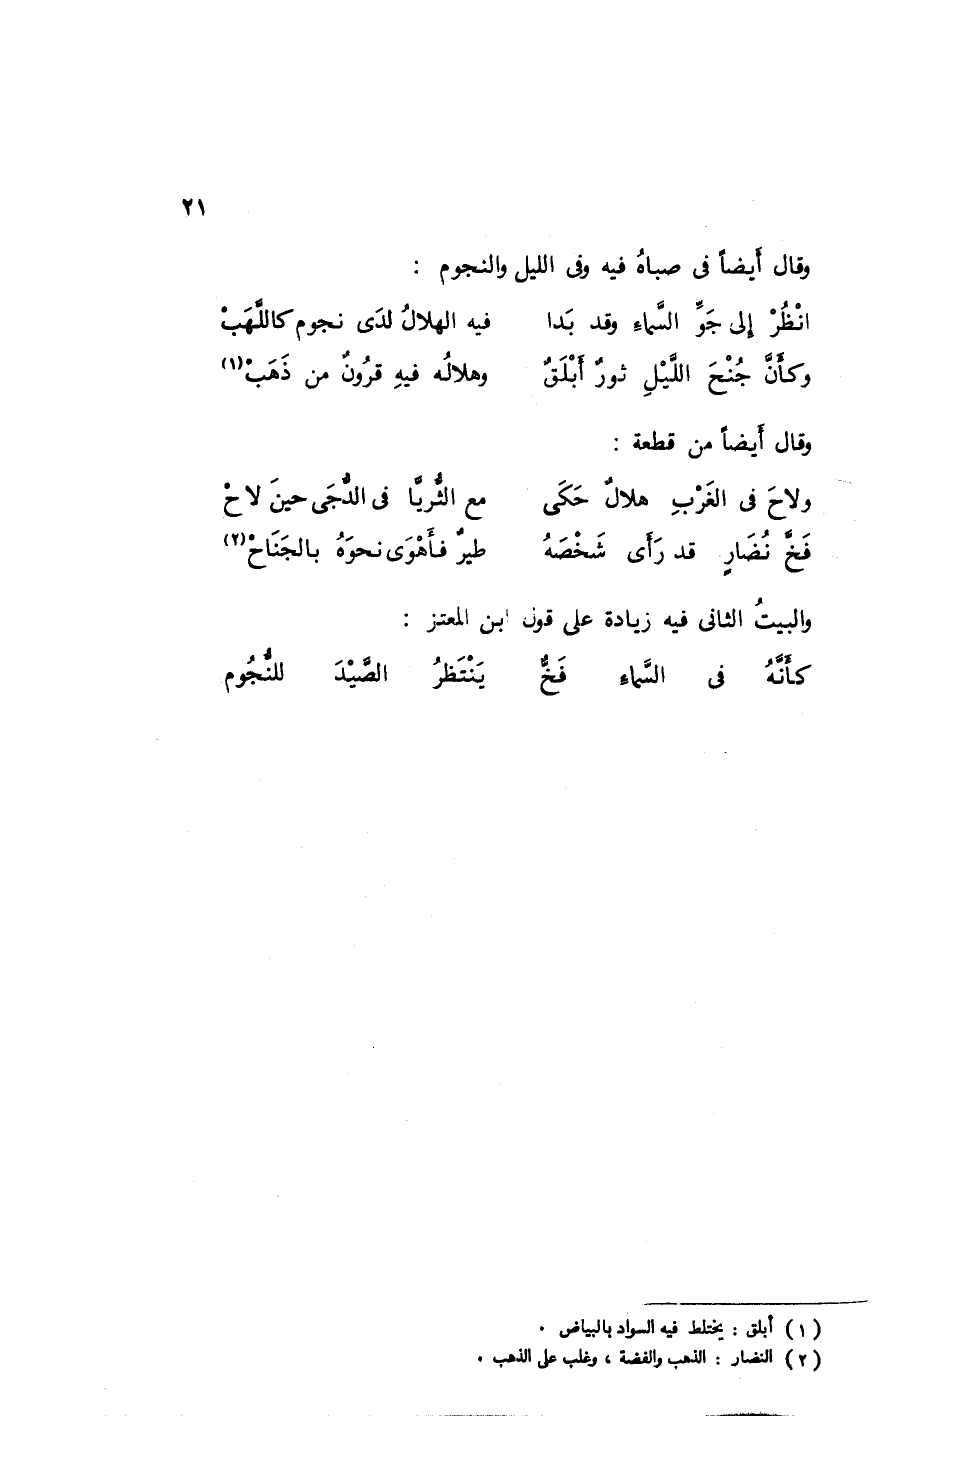 ٢١
وقال أَيضاً فى صباهُ فيه وفى الليل والنجوم :
انْظُرْ إِلى جَوِّ السَّماءِ وقد بَدا فيه الهلالُ لدَى نجوم كاللَّهَبْ
وكأَنَّ جُنْحَ اللَّيْلِ ثورٌ أَبْلَقٌ وهلالُه فيهِ قرُونٌ من ذَهَبْ(١)
وقال أَيضاً من قطعة :
ولاحَ فى الغَرْبِ هلالٌ حَكَى مع الثُّريَّا فى الدُّجَى حينَ لاحْ
فَخَّ نُضَارٍ قد رَأَى شَخْصَهُ طيرٌ فأَهْوَى نحوَهُ بالجَنَاحْ(٢)
والبيتُ الثانى فيه زيادة على قول ابن المعتز :
كأَنَّهُ فى السَّماءِ فَخٌّ يَنْتَظرُ الصَّيْدَ للنُّجُوم
(١) أبلق : يختلط فيه السواد بالبياض .
(٢) النضار : الذهب والفضة ، وغلب على الذهب .